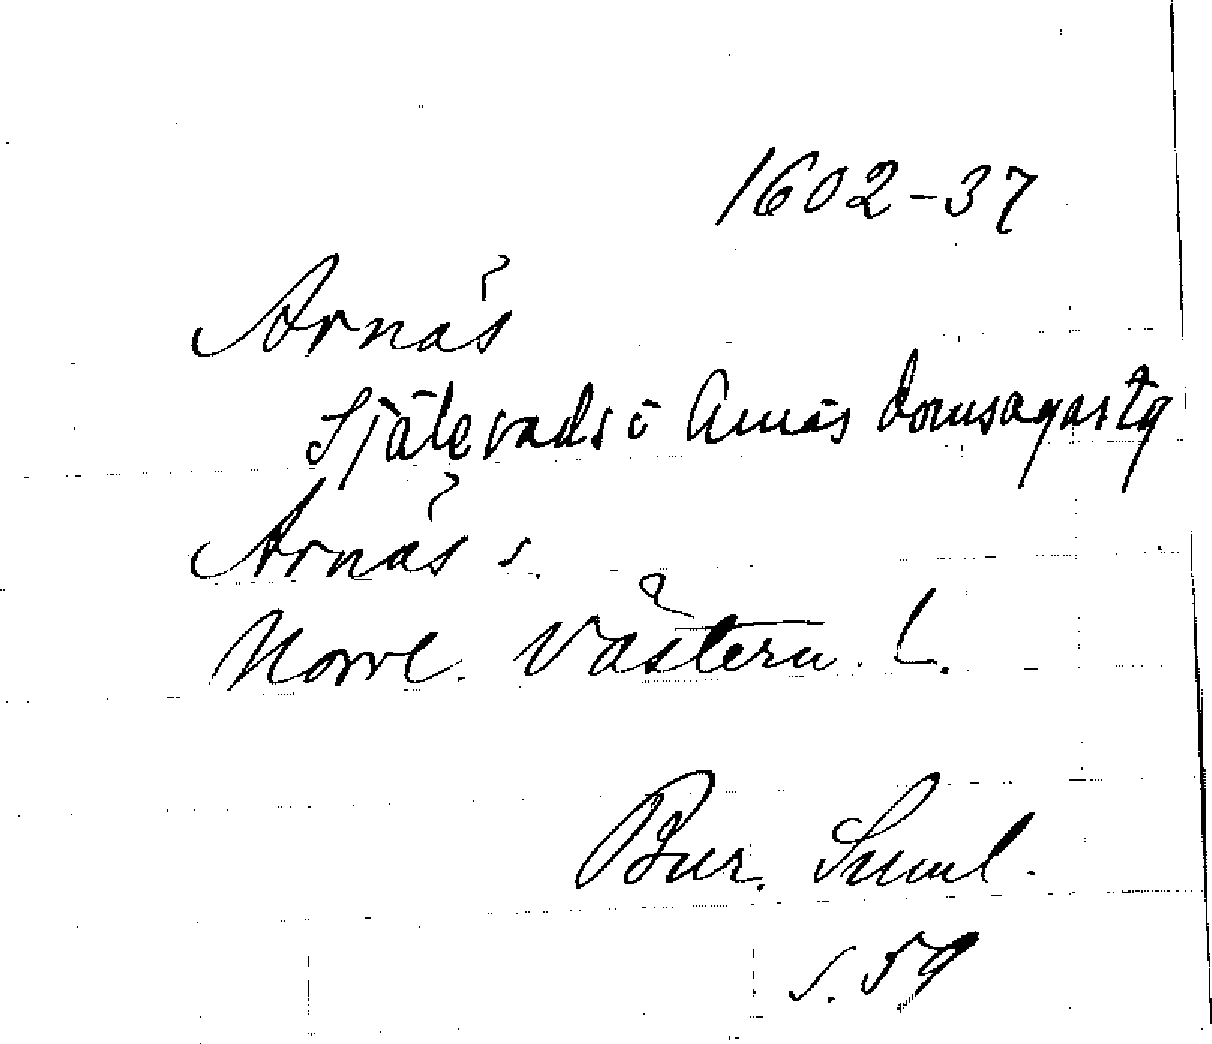 1602-37
Arnäs
Själevads o Arnäs domsagas tg
Arnäs s.
Norrl. Västern. L.
Bur. Suml.
s. 59